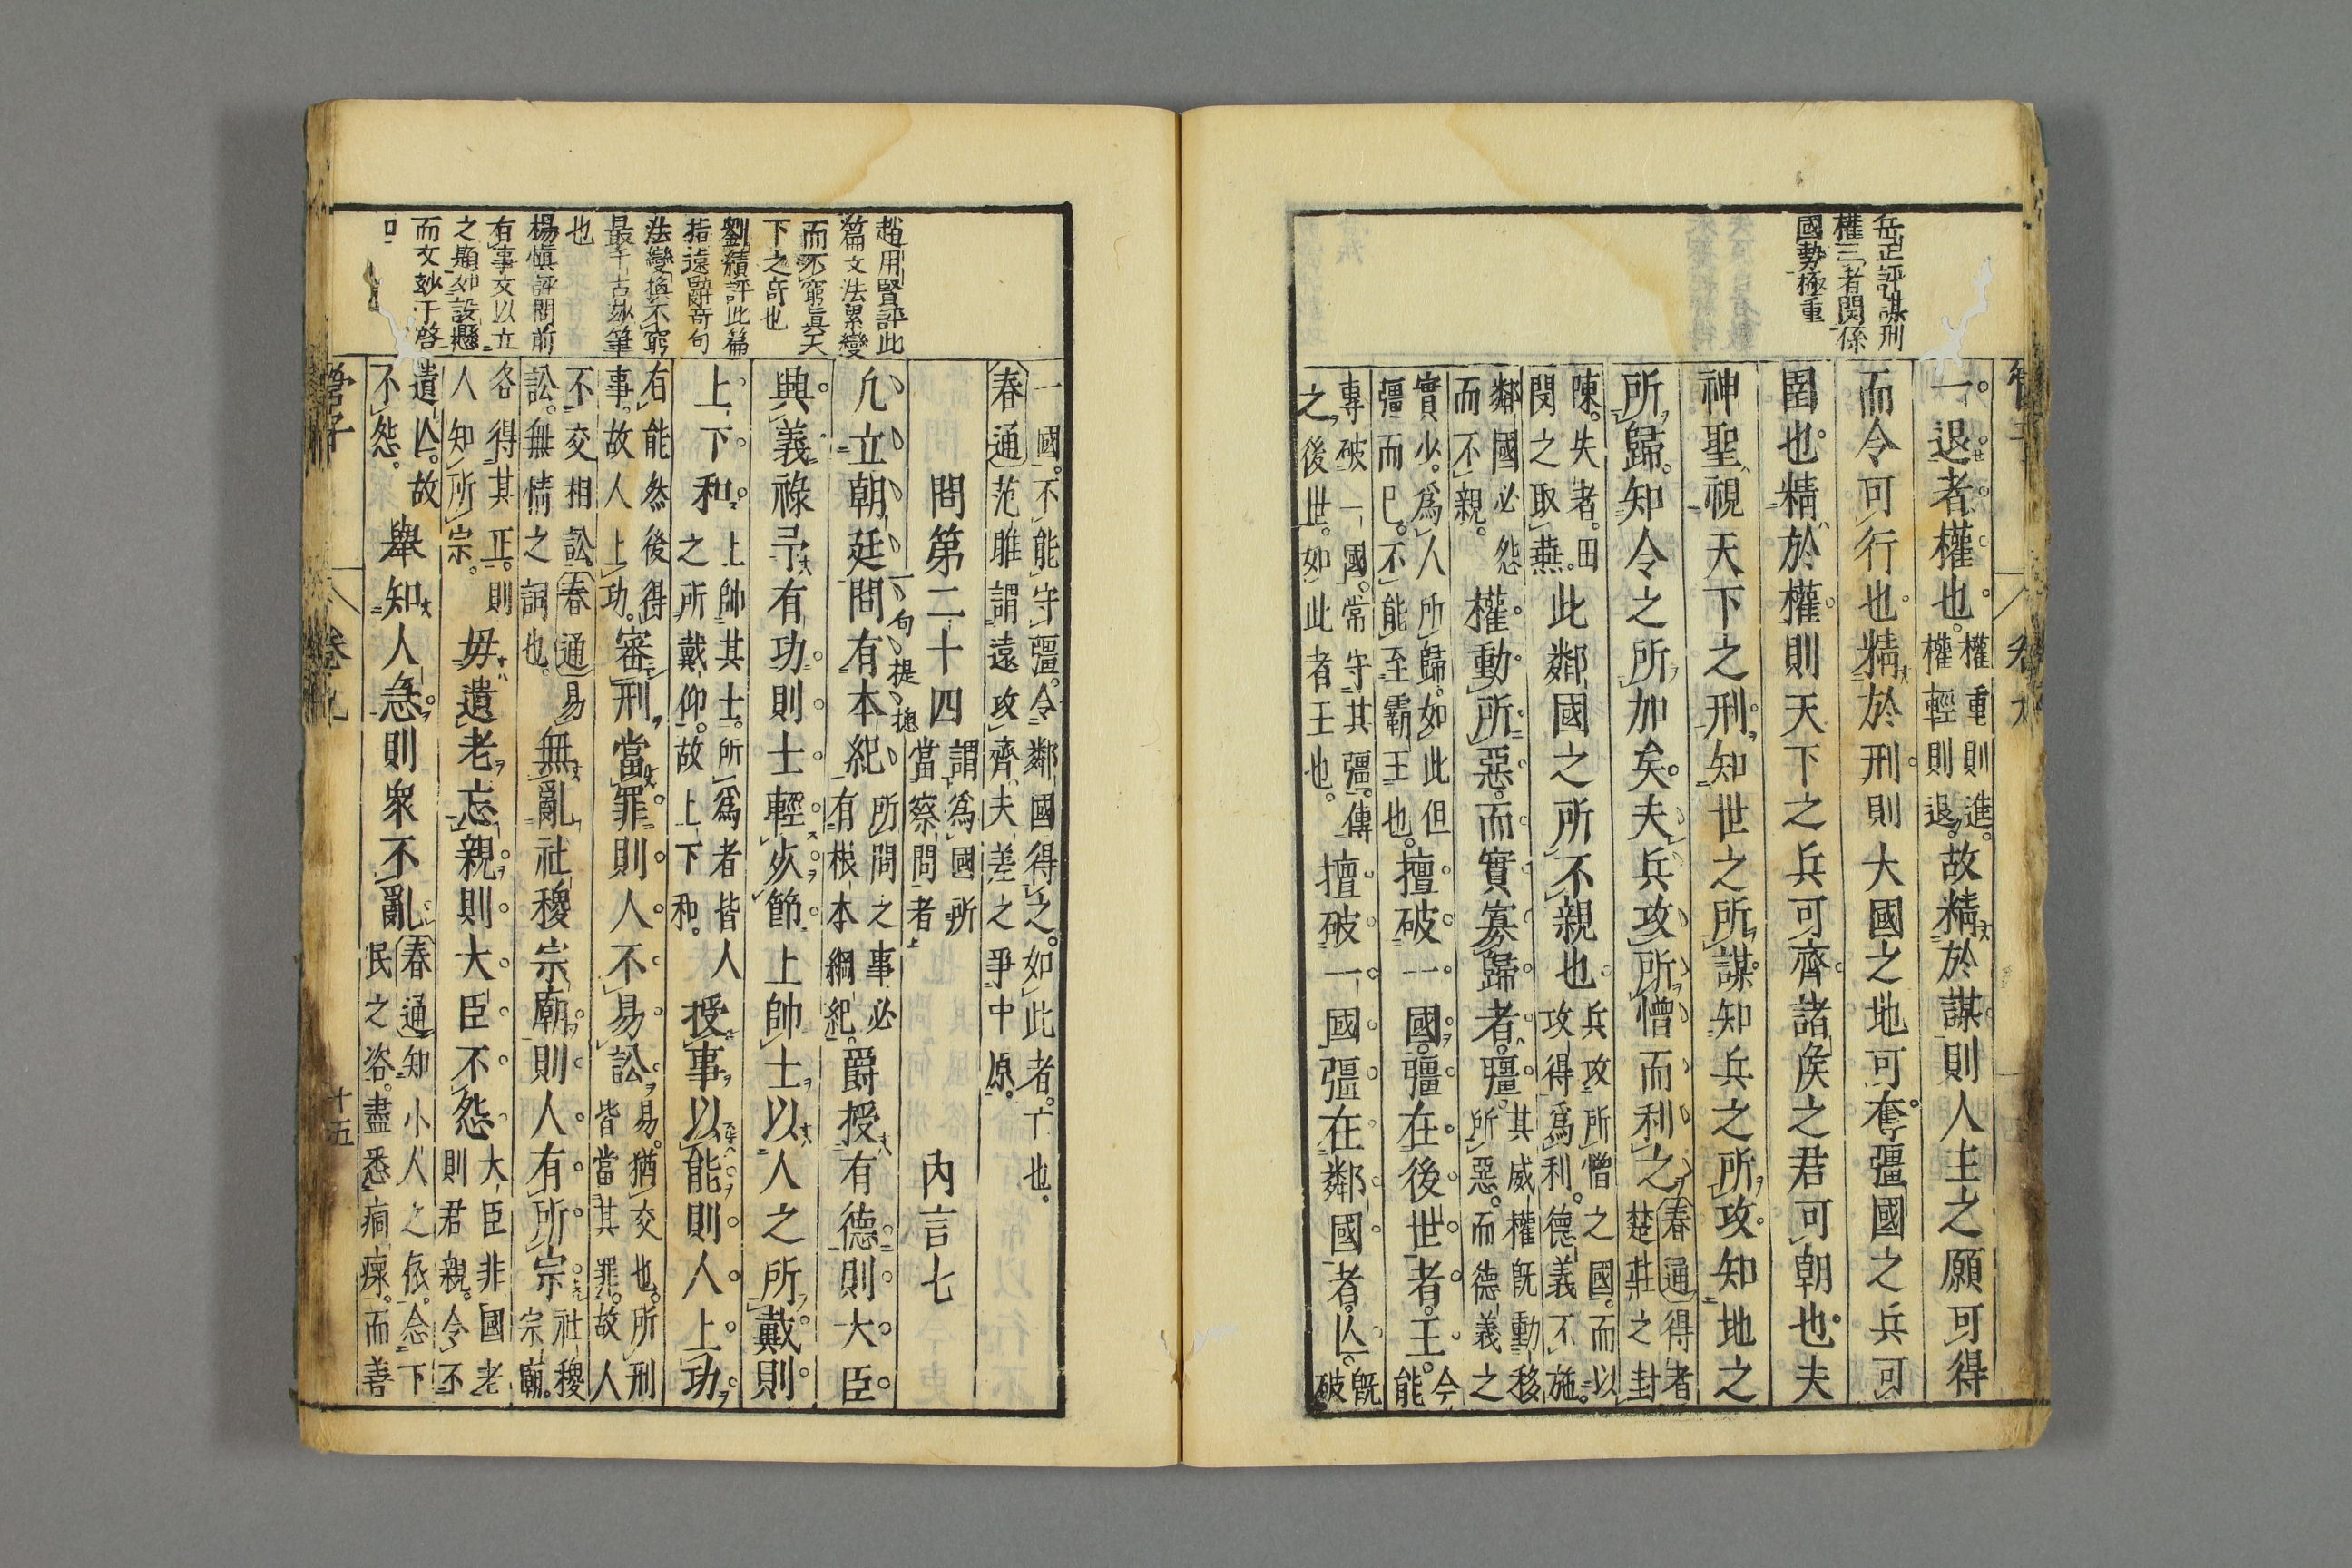 岳正評謀刑
權三者関係
國勢極重
一退者權也權重則進權輕則退故精於謀則人主之願可得
而令可行也精於刑則大國之地可奪彊國之兵可
圉也精於權則天下之兵可齊諸侯之君可朝也夫
神聖視天下之刑知世之所謀知兵之所攻知地之
所歸知令之所加矣夫兵攻所憎而利之春通得者楚莊之封
陳失者田閔之取燕此鄰國之所不親也兵攻所憎之國而以攻得爲利德義不施
鄰國必怨而不親權動所惡而實寡歸者彊其威權既動移所惡而德義之
實少爲人所歸如此但彊而已不能至霸王也擅破一國彊在後世者王今能
專破一國常守其彊傳之後世如此者王也擅破一國彊在鄰國者亾既破
一國不能守彊令鄰國得之如此者亡也
春通范雎謂遠攻齊夫差之爭中原
問第二十四謂爲國所當察問者 內言七
凢立朝廷問有本紀所問之事必有根本綱紀爵授有德則大臣
一句提摠
典義祿予有功則士輕死節上帥士以人之所戴則
上下和上帥其士所爲者皆人之所戴仰故上下和授事以能則人上功
有能然後得事故人上功審刑當罪則人不易訟易猶交也所刑皆當其罪故人
不交相訟無情之詞也春通易無亂社稷宗廟則人有所宗社稷宗廟
各得其正則人知所宗毋遺老忘親則大臣不怨大臣非國老則君親令不
遺亾故不怨舉知人急則衆不亂春通知小人之依念下民之咨盡悉痌瘝而善
趙用賢評此
篇文法累變
而不窮眞天
下之奇也
劉績評此篇
指遠辭奇句
法變換不窮
最千古妙筆
也
楊慎評問前
有事文以立
之題如設懸
而文妙于啓
口
管子
卷九
十五